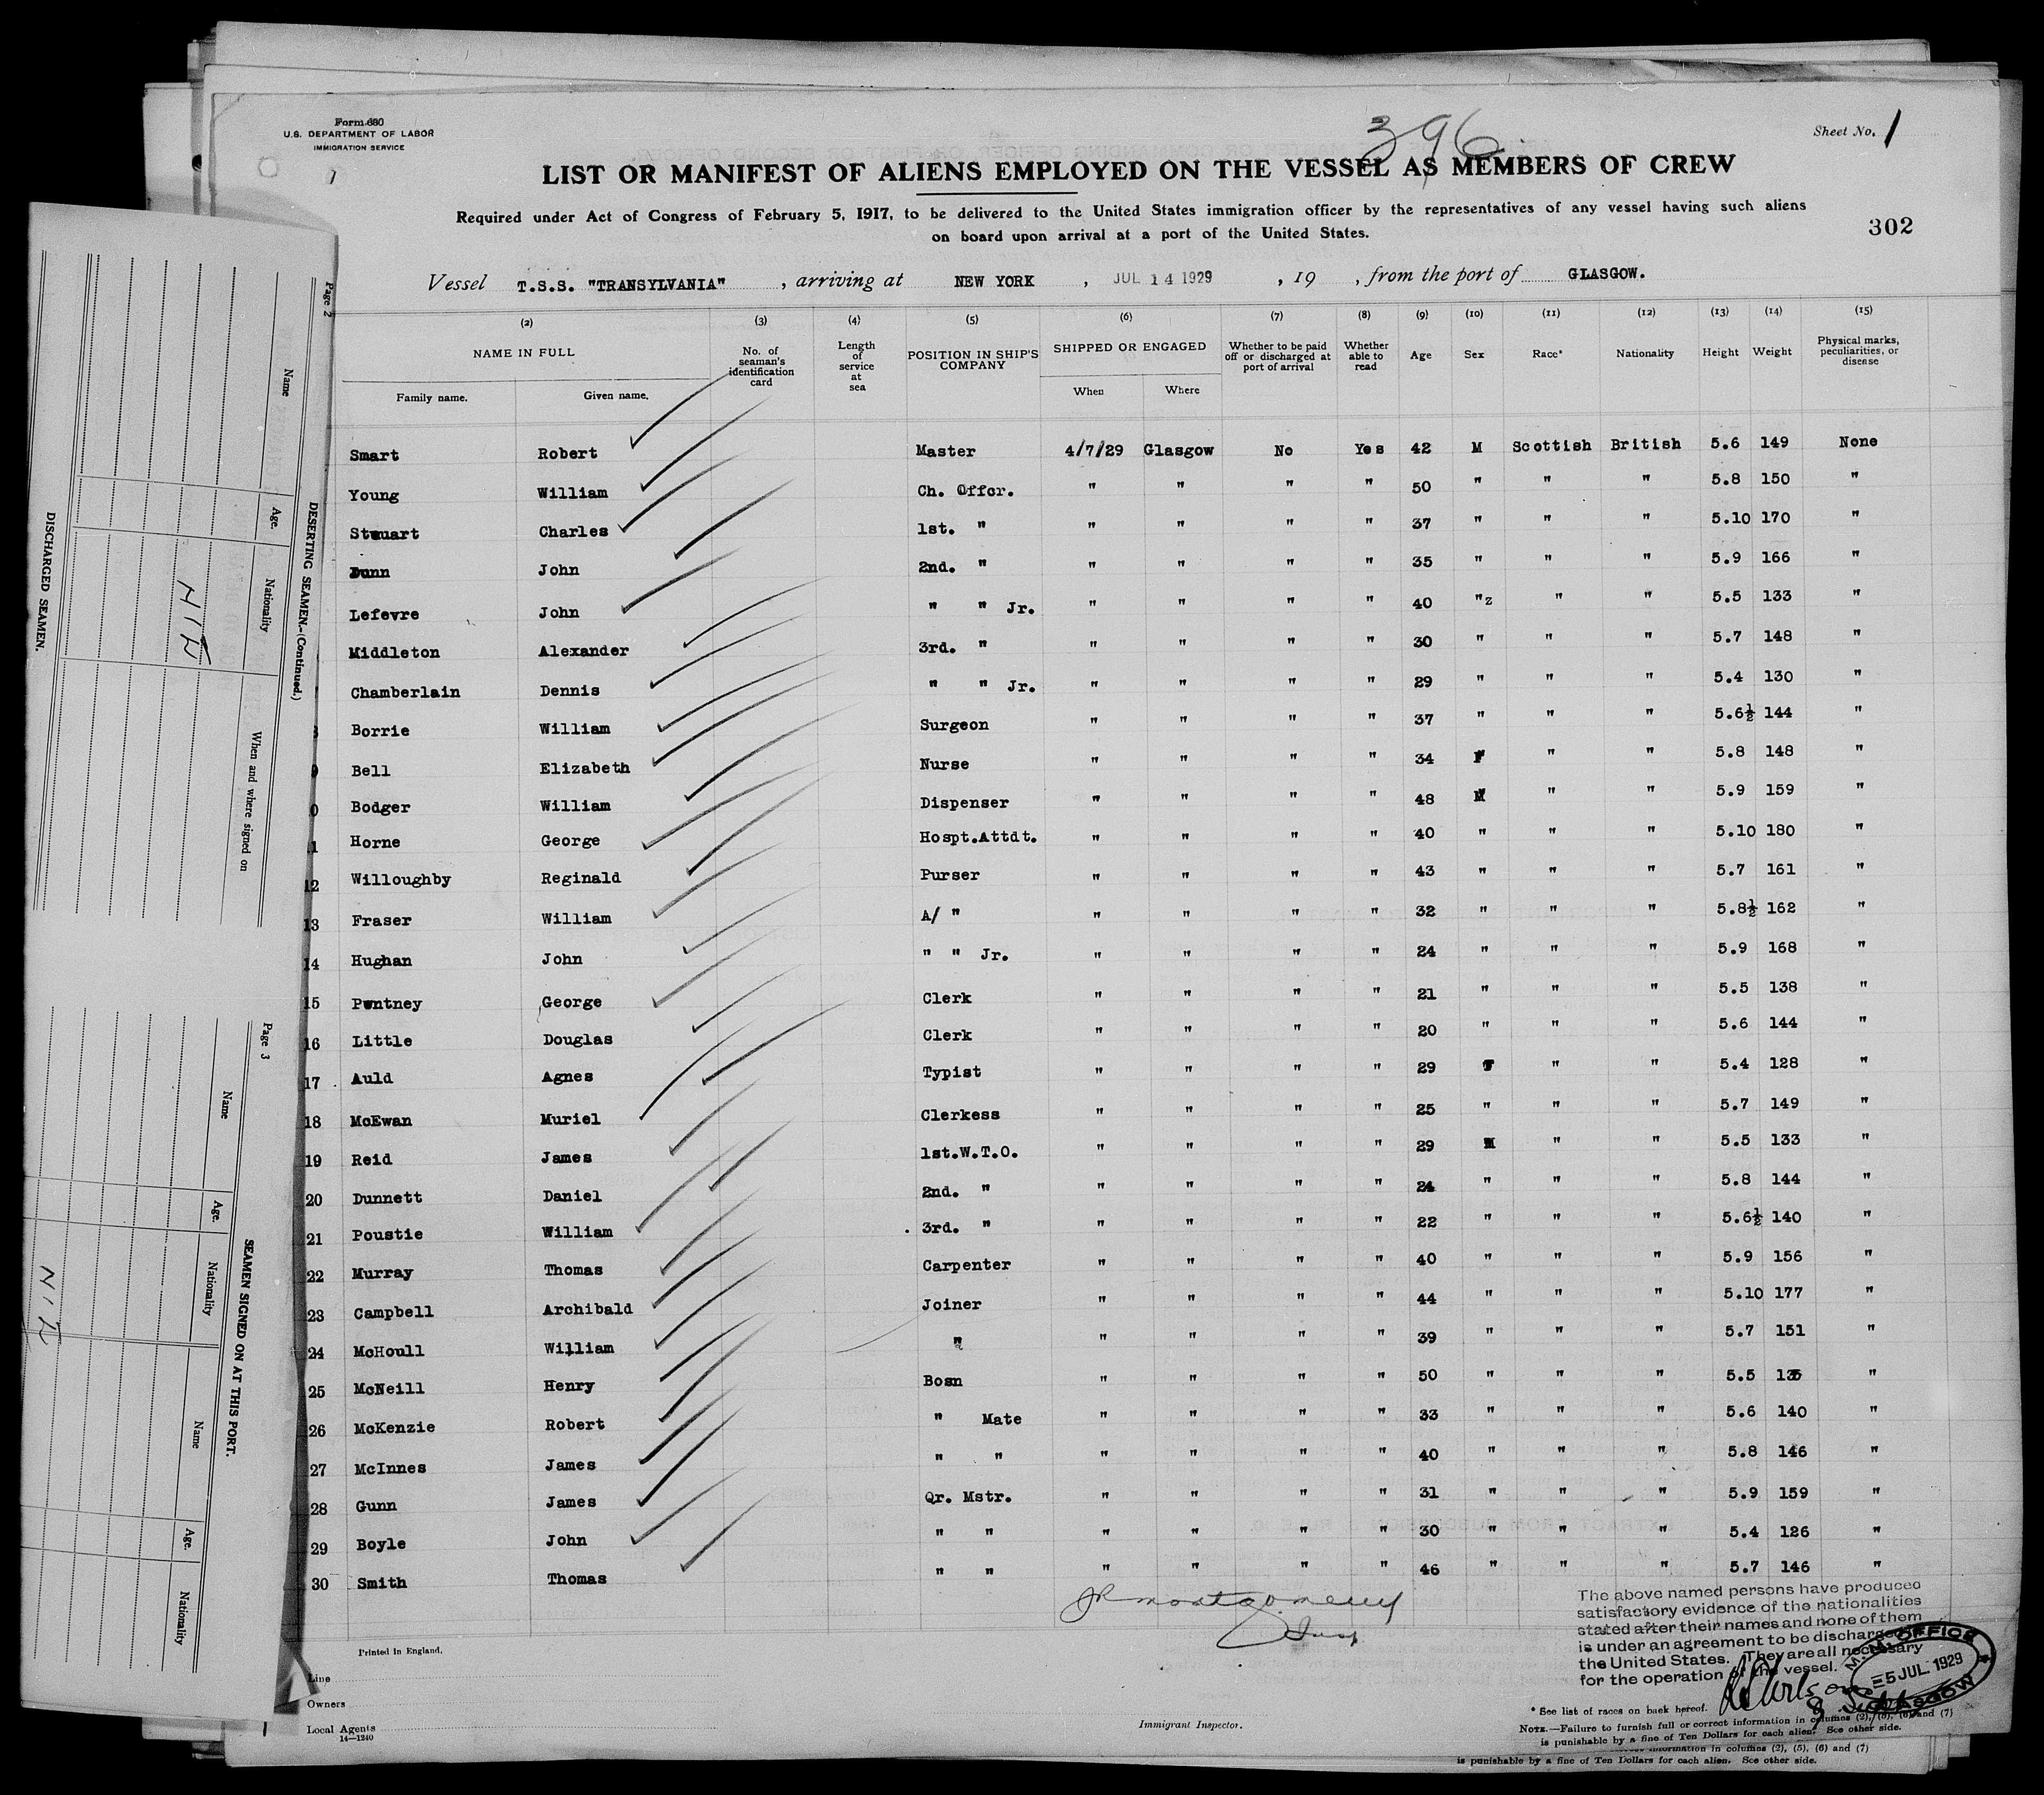 Form 680
U.S. DEPARTMENT OF LABOR
IMMIGRATION SERVICE
396
Sheet No. 1
LIST OR MANIFEST OF ALIENS EMPLOYED ON THE VESSEL AS MEMBERS OF CREW
Required under Act of Congress of February 5, 1917, to be delivered to the United States immigration officer by the representatives of any vessel having such aliens
on board upon arrival at a port of the United States.
302
Vessel T.S.S. "TRANSYLVANIA" , arriving at NEW YORK , JUL 14 1929 , 19 , from the port of GLASGOW.
(2) (3) (4) (5) (6) (7) (8) (9) (10) (11) (12) (13) (14) (15)
NAME IN FULL No. of seaman's identification card Length of service at sea POSITION IN SHIP'S COMPANY SHIPPED OR ENGAGED Whether to be paid off or discharged at port of arrival Whether able to read Age Sex Race* Nationality Height Weight Physical marks, peculiarities, or disease
Family name. Given name. When Where
Smart Robert Master 4/7/29 Glasgow No Yes 42 M Scottish British 5.6 149 None
Young William Ch. Offcr. " " " " 50 " " " 5.8 150 "
Steuart Charles 1st. " " " " " 37 " " " 5.10 170 "
Dunn John 2nd. " " " " " 35 " " " 5.9 166 "
Lefevre John " " Jr. " " " " 40 "z " " 5.5 133 "
Middleton Alexander 3rd. " " " " " 30 " " " 5.7 148 "
Chamberlain Dennis " " Jr. " " " " 29 " " " 5.4 130 "
Borrie William Surgeon " " " " 37 " " " 5.6½ 144 "
9 Bell Elizabeth Nurse " " " " 34 F " " 5.8 148 "
0 Bodger William Dispenser " " " " 48 M " " 5.9 159 "
1 Horne George Hospt.Attdt. " " " " 40 " " " 5.10 180 "
12 Willoughby Reginald Purser " " " " 43 " " " 5.7 161 "
13 Fraser William A/ " " " " " 32 " " " 5.8½ 162 "
14 Hughan John " " Jr. " " " " 24 " " " 5.9 168 "
15 Pentney George Clerk " " " " 21 " " " 5.5 138 "
16 Little Douglas Clerk " " " " 20 " " " 5.6 144 "
17 Auld Agnes Typist " " " " 29 F " " 5.4 128 "
18 McEwan Muriel Clerkess " " " " 25 " " " 5.7 149 "
19 Reid James 1st.W.T.O. " " " " 29 M " " 5.5 133 "
20 Dunnett Daniel 2nd. " " " " " 24 " " " 5.8 144 "
21 Poustie William 3rd. " " " " " 22 " " " 5.6½ 140 "
22 Murray Thomas Carpenter " " " " 40 " " " 5.9 156 "
23 Campbell Archibald Joiner " " " " 44 " " " 5.10 177 "
24 McHoull William " " " " " 39 " " " 5.7 151 "
25 McNeill Henry Bosn " " " " 50 " " " 5.5 "
26 McKenzie Robert " Mate " " " " 33 " " " 5.6 140 "
27 McInnes James " " " " " " 40 " " " 5.8 146 "
28 Gunn James Qr. Mstr. " " " " 31 " " " 5.9 159 "
29 Boyle John " " " " " " 30 " " " 5.4 126 "
30 Smith Thomas " " " " " " 46 " " " 5.7 146 "
JR Montgomery
Insp
The above named persons have produced
satisfactory evidence of the nationalities
stated after their names and none of them
is under an agreement to be discharged
the United States. They are all necessary
for the operation of the vessel.
M.M. OFFICE
5 JUL 1929
GLASGOW
Printed in England.
Line
Owners
Local Agents
14—1240
Immigrant Inspector.
* See list of races on back hereof.
NOTE.—Failure to furnish full or correct information in columns (2), (5), (6) and (7)
is punishable by a fine of Ten Dollars for each alien. See other side.
information in columns (2), (5), (6) and (7)
is punishable by a fine of Ten Dollars for each alien. See other side.
Page 2
DESERTING SEAMEN.—(Continued.)
Name Age. Nationality When and where signed on
NIL
DISCHARGED SEAMEN.
Page 3
SEAMEN SIGNED ON AT THIS PORT.
Name Age. Nationality Name Age. Nationality
NIL